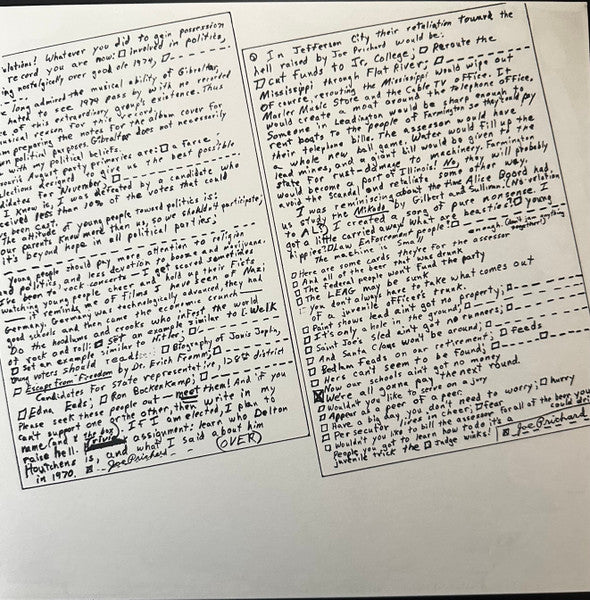 volations! Whatever you did to gain possession
record you are now: □ involved in politics,
ing nostalgically over good o/e 1974, □
long admired the musical ability of Gibraltar.
hated to see 1979 pass by with no recorded
e of this extraordinary group's existence. Thus
musical reason for
m preparing the notes for the album cover for
own political purposes. Gibraltar does not necessarily
with my political beliefs.
ssouri August party primaries are: □ a farce;
us the best possible
didates for November, □
I know is, I was defeated by a candidate who
ceived less than 20% of the votes that could
ve been cast.
The attitude of young people toward politics is:
our parents know more than us, so we shouldn't participate;
it's beyond hope in all political parties;
Young people should pay more attention to religion
and politics, and less devotion to booze and marijuana.
I've been to rock concerts - I get scared sometimes
watching young people cheer and hold up their Fists
it reminds me of films I have seen of Nazi
Germany. Germany was technologically advanced, they had
good schools and then came the economic crunch
Do the hoodlums and crooks who infest the world
of rock and roll: ☒ Set an example similar to L. Welk
□ Set an example similar to Hitler; □
Young voters should read: □ Biography of Janis Joplin,
□ Escape from Freedom by Dr. Erich Fromm; □
Candidates for State representative, 128th district
□ Edna Eads; □ Ron Bockenkamp; □
Please seek these people out - meet them! And if you
can't support one or the other, then write in my
name. If I am elected, I plan to
raise hell. assignment: learn who Delton
Houtchens is, and what I said about him
in 1970. ☒ Joe Prichard (OVER)
□ In Jefferson City their retaliation toward the
hell raised by Joe Prichard would be:
□ Cut funds to Jr. College; □ Reroute the
Mississippi through Flat River; □
Of course, rerouting the Mississippi would wipe out
Mosler Mobile Store and the Cable TV office. It
would create a moat around the telephone office.
Someone in Leadington would be sharp enough to
rent boats to the people of Farmington so they could pay
their telephone bills. The assessor would have
a whole new ball game. Water would fill up the
lead mines, and a giant bill would be given to the
state for rust-damage to machinery. Farmington
would become a part of Illinois! No, they will probably
avoid the scandal and retaliate some other way.
I was reminiscing about the time Alice Board had
us study the Mikado by Gilbert and Sullivan. (No relation
to Al S) I created a song of pure nonsense. I
got a little carried away. What are beasties? □ young
hippies? □ Law Enforcement people? □ enough.
The machine is small
□ Here are some cards they're for the assessor
□ And all of the beer that was drunk
□ The federal people won't fund the party
□ The LEAG may be sunk
□ You don't always have to take what comes out
of a juvenile officer's trunk.
□ Paint shows lead ain't got no property;
□ It's only a hole in the ground;
□ Saint Joe's lead ain't got no manners;
□ And Santa Claus won't be around;
□ Bedham Feads on our retirement; □ feeds
□ Here can't seem to be found;
□ Now our schools ain't got no money
☒ We're all gonna pay the next round.
□ Would you like to serve on a jury
□ Appear as a peer of a peer.
□ Have a big day, you don't need to worry; □ hurry
□ Persecutor lives in cheer; □ fear
□ Wouldn't you like to bill the assessor for all of the beer you could drink
People you got to learn how to do it
juvenile trick the □ Judge winks! ☒ Joe Prichard